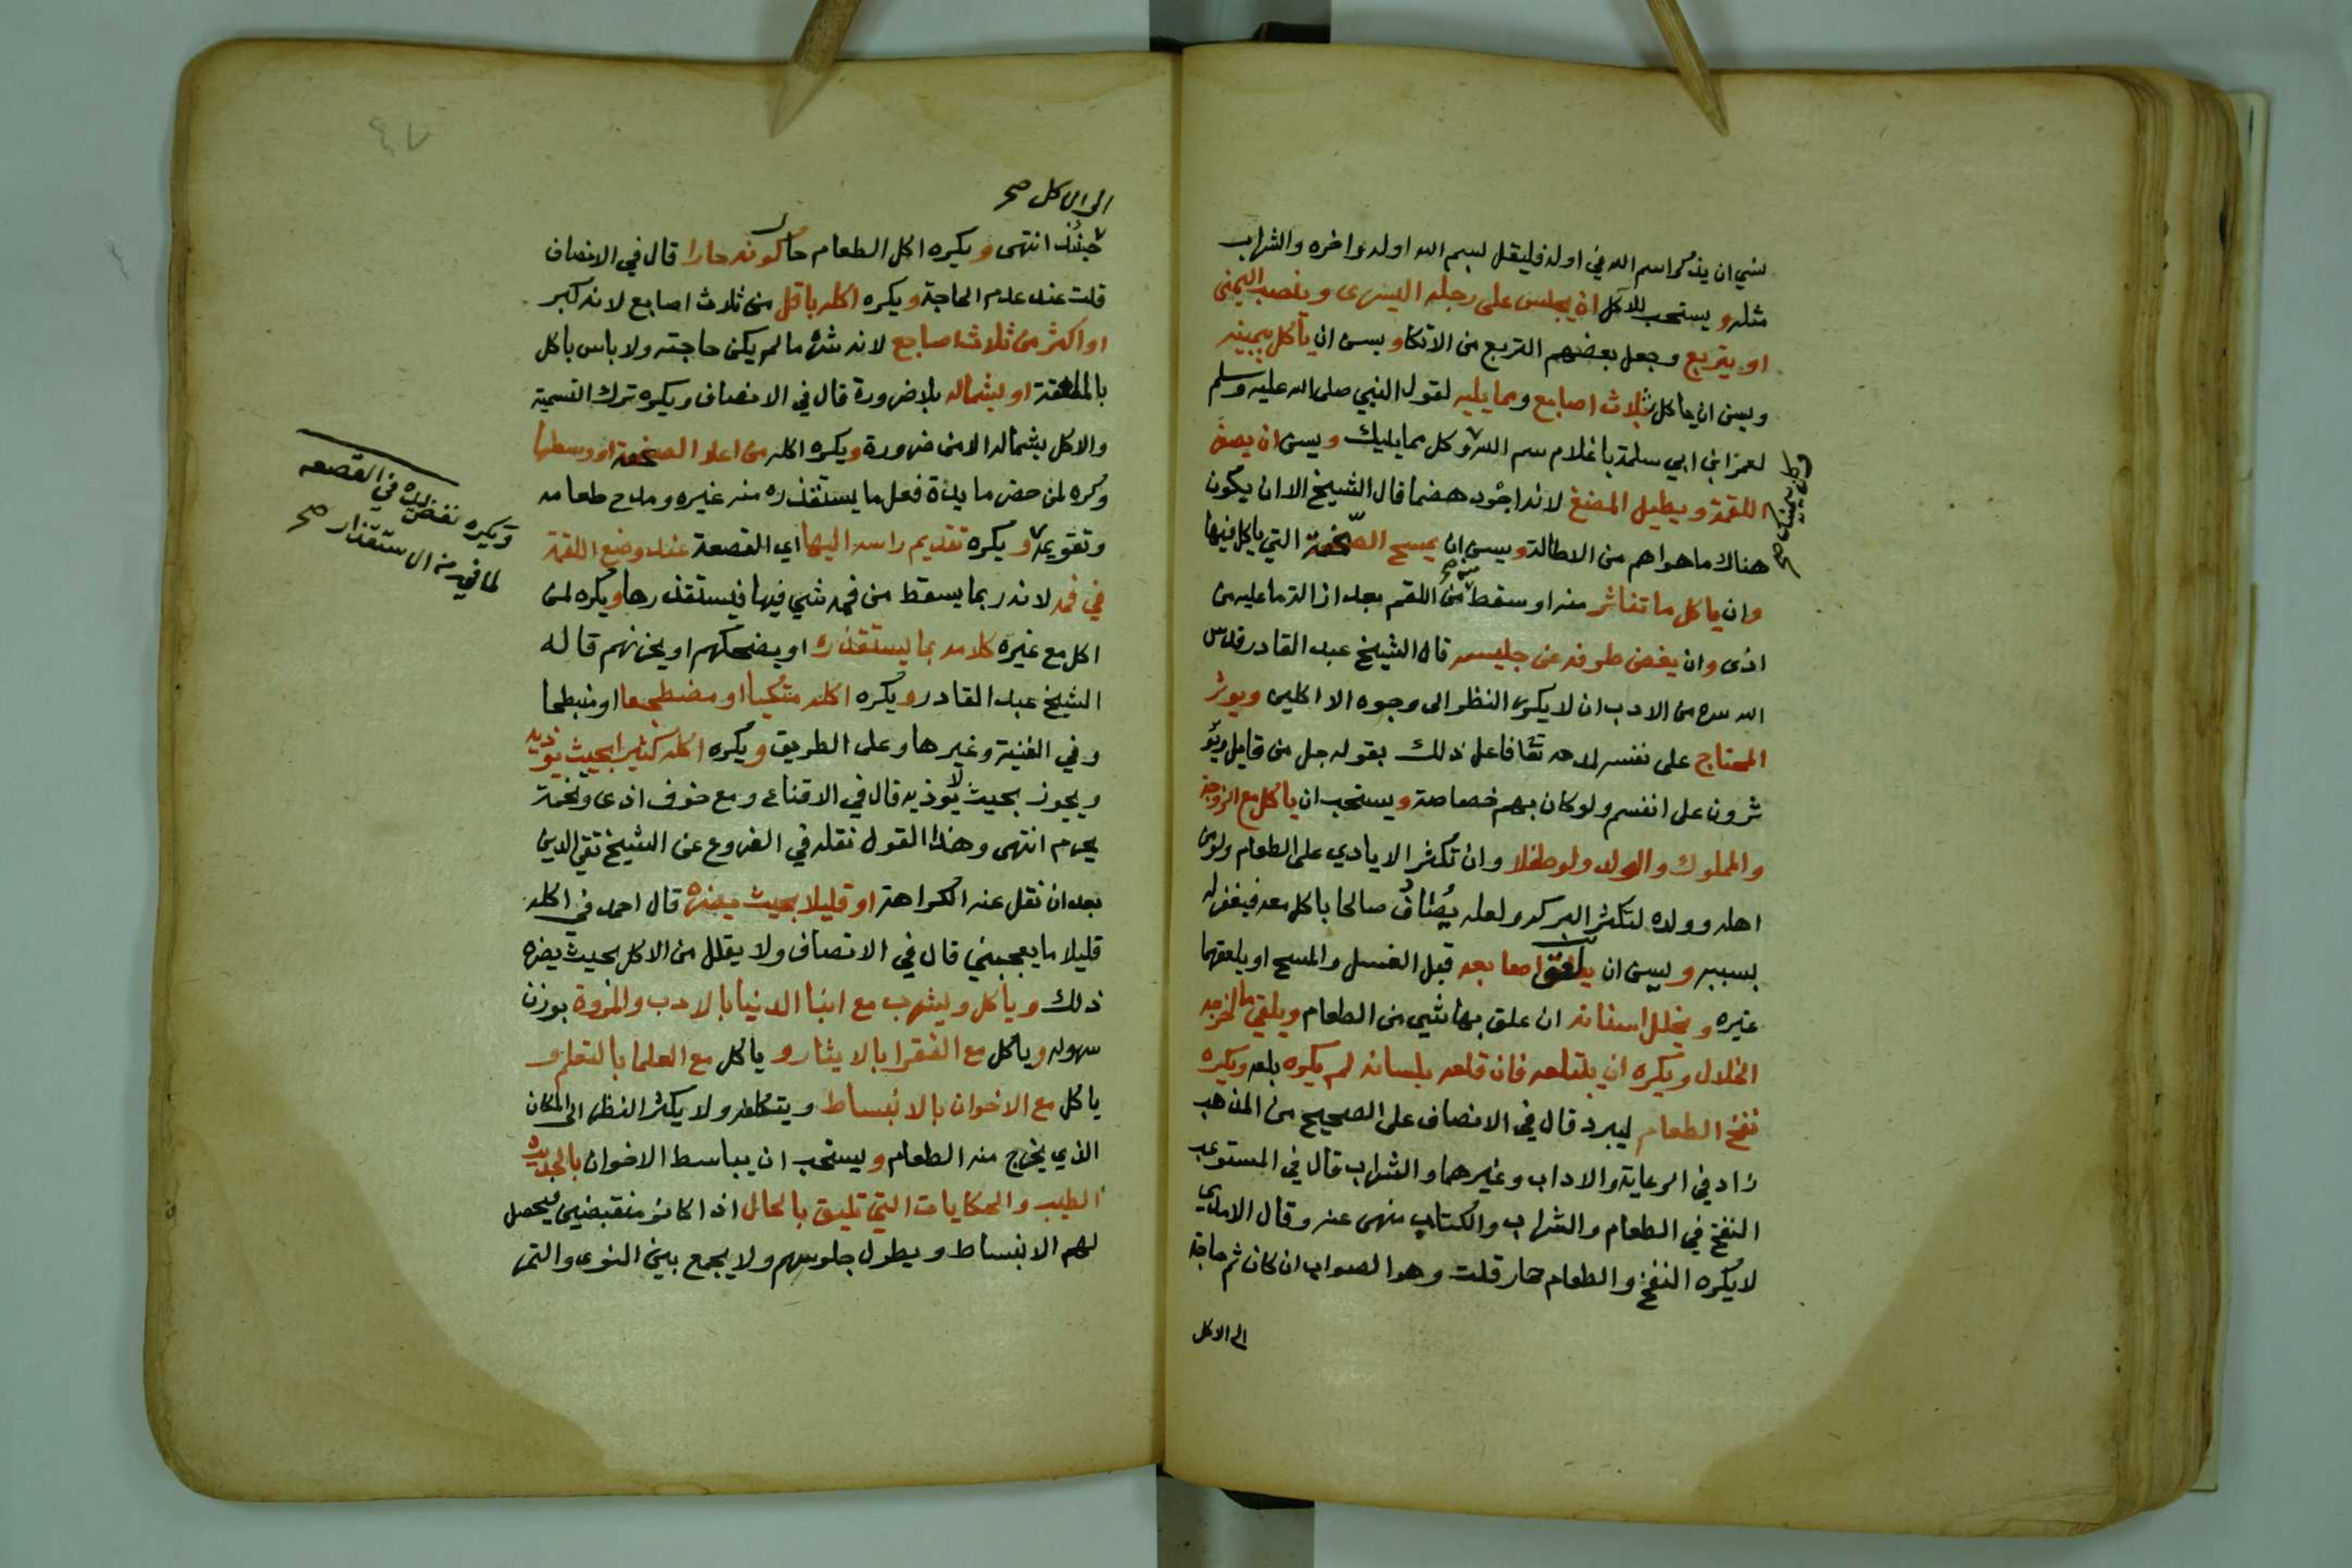 نسي ان يذكر اسم الله في اوله فليقل بسم الله اوله واخره والشراب
مثله ويستحب للآكل ان يجلس على رجله اليسرى وينصب اليمنى
او يتربع وجعل بعضهم التربع من الاتكا ويسن ان ياكل بيمينه
ويسن ان ياكل بثلاث اصابع ومما يليه لقول النبي صلى الله عليه وسلم
لعمر ابن ابي سلمة يا غلام سم الله وكل مما يليك ويسن ان يصغر
وكل بيمينك صح
اللقمة ويطيل المضغ لانه اجود هضما قال الشيخ الا ان يكون
هناك ما هو اهم من الاطالة ويسن ان يمسح الصحفة التي ياكل فيها
وان ياكل ما تناثر منه او سقط منه من اللقم بعد ازالة ما عليه من
اذى وان يغض طرفه عن جليسه قال الشيخ عبد القادر قدس
الله سره من الادب ان لا يكثر النظر الى وجوه الاكلين ويوثر
المحتاج على نفسه لمدحه تعا فاعل ذلك بقوله جل من قايل ويؤ
ثرون على انفسهم ولو كان بهم خصاصة ويستحب ان ياكل مع الزوجة
والمملوك والولد ولو طفلا وان تكثر الايادي على الطعام ولو من
اهله وولده لتكثر البركه ولعله يصادف صالحا ياكل معه فيغفر له
بسببه ويسن ان يلعق اصابعه قبل الغسل والمسح او يلعقها
غيره ويخلل اسنانه ان علق بها شي من الطعام ويلقي ما اخرجه
الخلال ويكره ان يبتلعه فان قلعه بلسانه لم يكره بلعه ويكره
نفخ الطعام ليبرد قال في الانصاف على الصحيح من المذهب
زاد في الرعاية والاداب وغيرهما والشراب قال في المستوعب
النفخ في الطعام والشراب والكتاب منهى عنه وقال الامدي
لا يكره النفخ والطعام حار قلت وهو الصواب ان كان ثم حاجة
الى الاكل
٤٧
الى الاكل صح
حينئذ انتهى ويكره اكل الطعام حال كونه حارا قال في الانصاف
قلت عند عدم الحاجة ويكره اكله باقل من ثلاث اصابع لانه كبر
او اكثر من ثلاث اصابع لانه شره ما لم يكن حاجته ولا باس باكل
بالملعقة او بشماله بلا ضرورة قال في الانصاف ويكره ترك التسمية
والاكل بشماله الا من ضرورة ويكره اكله من اعلا الصحفة او وسطها
وكره لمن حضر مايدة فعل ما يستقذره منه غيره ومدح طعامه
وتقويمه ويكره تقديم راسه اليها اي القصعة عند وضع اللقمة
ويكره نفض يده في القصعه
لما فيه من الاستقذار صح
في فمه لانه ربما يسقط من فمه شي فيها فيستقذرها ويكره لمن
اكل مع غيره كلامه بما يستقذره او يضحكهم او يحزنهم قاله
الشيخ عبد القادر ويكره اكله متكيا او مضطجعا او منبطحا
وفي الغنية وغيرها وعلى الطريق ويكره اكله كثيرا بحيث يوذيه
ويجوز بحيث لا يوذيه قال في الاقناع ومع خوف اذى وتخمة
يحرم انتهى وهذا القول نقله في الفروع عن الشيخ تقي الدين
بعد ان نقل عنه الكراهة او قليلا بحيث يضره قال احمد في اكله
قليلا ما يعجبني قال في الانصاف ولا يقلل من الاكل بحيث يضره
ذلك وياكل ويشرب مع ابنا الدنيا بالادب والمروة بوزن
سهوله وياكل مع الفقرا بالايثار وياكل مع العلما بالتعلم و
ياكل مع الاخوان بالانبساط ويتكلف ولا يكثر النظر الى المكان
الذي يخرج منه الطعام ويستحب ان يباسط الاخوان بالحديث
الطيب والحكايات التي تليق بالحال اذا كانو منقبضين فيحصل
لهم الانبساط ويطول جلوسهم ولا يجمع بين النوى والتمر